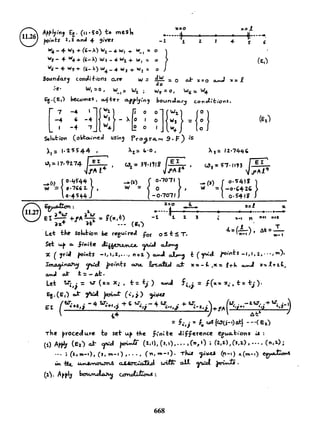 11.26
Applying Eq. (11.50) to mesh points 2, 3 and 4 gives
x=0 x=l
-1 1 2 3 4 5 6
W4 - 4 W3 + (6-λ) W2 - 4 W1 + W-1 = 0
W5 - 4 W4 + (6-λ) W3 - 4 W2 + W1 = 0
W6 - 4 W5 + (6-λ) W4 - 4 W3 + W2 = 0
(E1)
Boundary conditions are W = dW/dx = 0 at x=0 and x=l
i.e. W1 = 0, W-1 = W2 ; W5 = 0, W6 = W4
Eq. (E1) becomes, after applying boundary conditions,
[7 -4 1; -4 6 -4; 1 -4 7] {W2 W3 W4} - λ [1 0 0; 0 1 0; 0 0 1] {W2 W3 W4} = {0 0 0} (E2)
Solution (obtained using Program 9.F) is
λ1 = 1.25544, λ2 = 6.0, λ3 = 12.7446
ω1 = 17.9274 √(EI/ρAl⁴), ω2 = 39.1918 √(EI/ρAl⁴), ω3 = 57.1193 √(EI/ρAl⁴)
W(1) = {0.4544 0.7662 0.4544}, W(2) = {0.7071 0 -0.7071}, W(3) = {0.5418 -0.6426 0.5418}
11.27
Equation:
EI ∂⁴w/∂x⁴ + ρA ∂²w/∂t² = f(x,t)
x=0 h x=l
-1 1 2 3 i n-1 n n+1
Let the solution be required for 0 ≤ t ≤ T.
h = (l/(n-1)), Δt = T/(m-1)
Set up finite difference grid along x (grid points -1,1,2,...,n+1) and along t (grid points -1,1,2,...,m).
Imaginary grid points are located at x = -h, x = l+h and x = l+2h, and at t = -Δt.
Let wi,j = w(x = xi, t = tj) and fi,j = f(x = xi, t = tj).
Eq. (E1) at grid point (i,j) gives
EI (wi+2,j - 4 wi+1,j + 6 wi,j - 4 wi-1,j + wi-2,j / h⁴) + ρA (wi,j+1 - 2 wi,j + wi,j-1 / Δt²)
= fi,j = f0 cos{ω(j-1)Δt} --- (E2)
The procedure to set up the finite difference equations is:
(1) Apply (E2) at grid points (2,1), (3,1), ..., (n,1) ; (2,2), (3,2), ..., (n,2);
... ; (2,m-1), (3,m-1), ..., (n,m-1). This gives (n-1) x (m-1) equations
in the unknowns associated with all grid points.
(2). Apply boundary conditions:
668